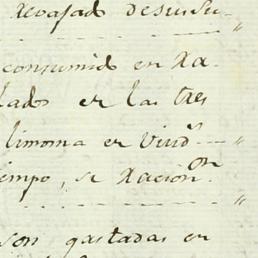 revajado desusSu-
consumido en Ra-
lados en las tres
limoma en Vind.ˢ
empo, se Racion.ᵒⁿ
son gastadas en